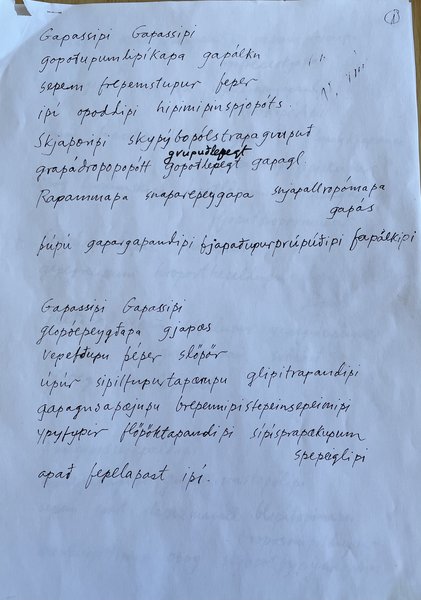 ①
Gapassipi Gapassipi
gopotupumlipikapa gapálkn
sepem frepemstupur feper
ipí opoddipi hipimipinspjopóts.
Skjapónipi skypýbopolstrapagrupuð
grupuðlepegt
grapádropopopótt gopoðlepegt gapagl.
Rapammapa snaparepeygapa snjapallropómapa
gapás
þúpú gapargapandipi þjapaðupurprúpúðipi fapálkipi
Gapassipi Gapassipi
glopóepeygðapa gjapæs
vepefðupu þéper slöpör
úpúr sipilfupurtapæmpu glipitrapandipi
gapagnsapæjupu brepennipistepeinsepeimipi
ypyfypir flöpöktapandipi sípísprapækupum
spepeglipi
apað fepellapast ipí.